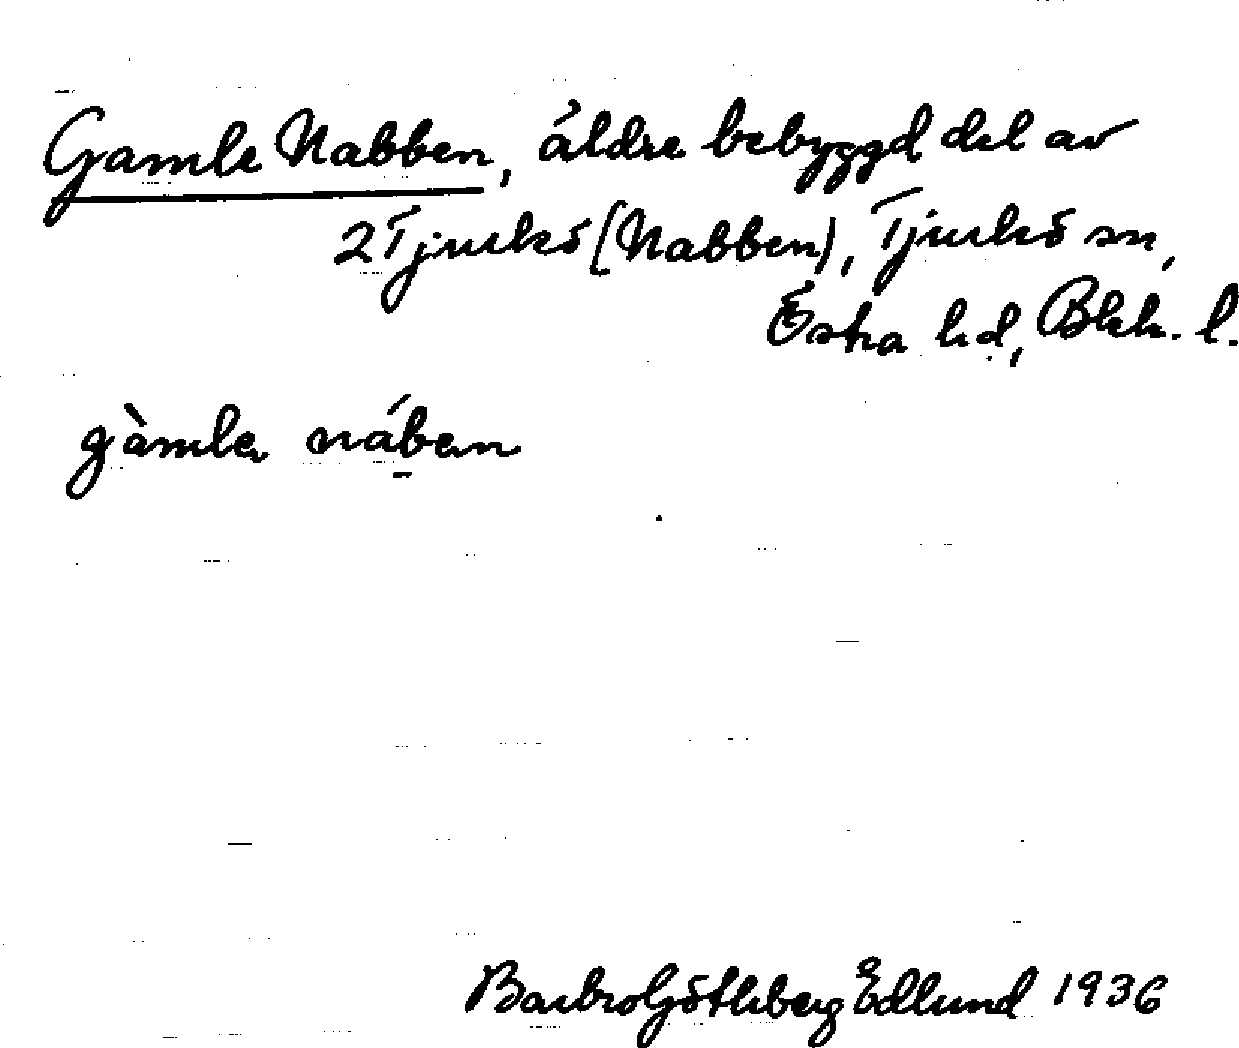 Gamle Nabben, äldre bebyggd del av
2 Tjurkö (Nabben), Tjurkö sn,
Östra hd, Blek. l.
gàmle náben
Barbro Götheberg Edlund 1936